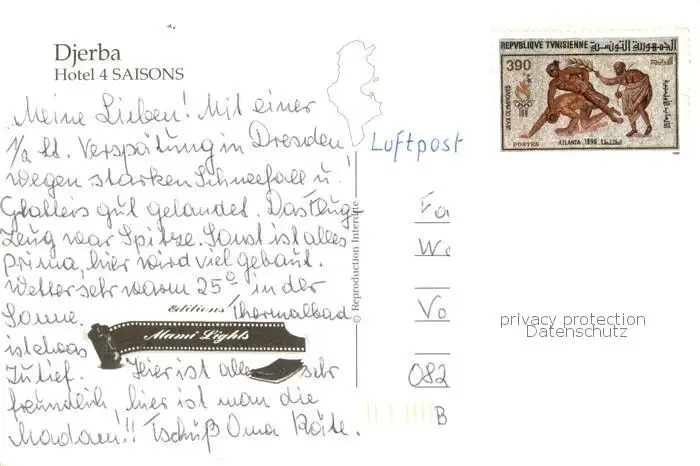 Djerba
Hotel 4 SAISONS
Meine Lieben! Mit einer
1/2 St. Verspätung in Dresden
wegen starken Schneefall u.
Glatteis gut gelandet. Das Flug-
zeug war Spitze. Sonst ist alles
prima, hier wird viel gebaut.
Wetter sehr warm 25° in der
Sonne. Thermalbad
ist etwas
zu tief. Hier ist alles sehr
freundlich, hier ist man die
Madam!! Tschüß Oma Käte.
Editions
Mami Lights
© Reproduction Interdite
Luftpost
REPVBLIQVE TVNISIENNE الجمهورية التونسية
390
JEVX OLYMPIQVES
POSTES
ATLANTA 1996
Fa
We
Vo
082
B
privacy protection
Datenschutz